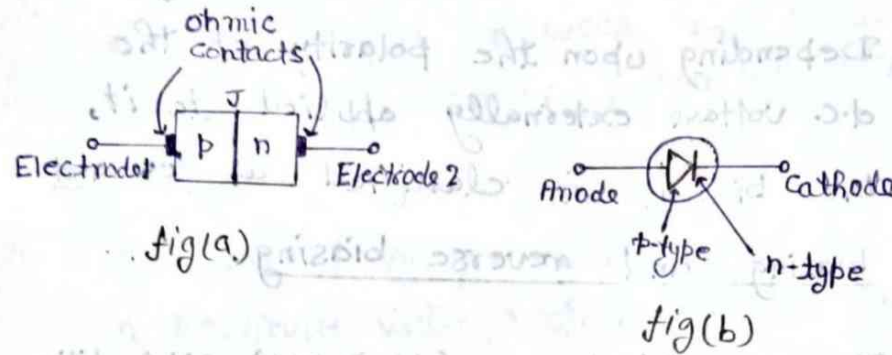 ohmic
contacts
J
p n
Electrode1 Electrode 2
fig(a)
Anode Cathode
p-type
n-type
fig(b)